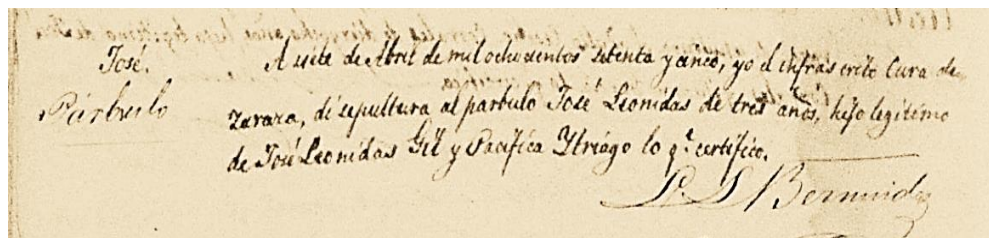 José.
Párbulo
A siete de Abril de mil ochocientos setenta y cinco, yo el infrascrito Cura de
Zaraza, di sepultura al parbulo José Leonidas de tres años, hijo legítimo
de José Leonidas Gil y Pacífica Ytriago lo q.e certifico.
Bermúdez